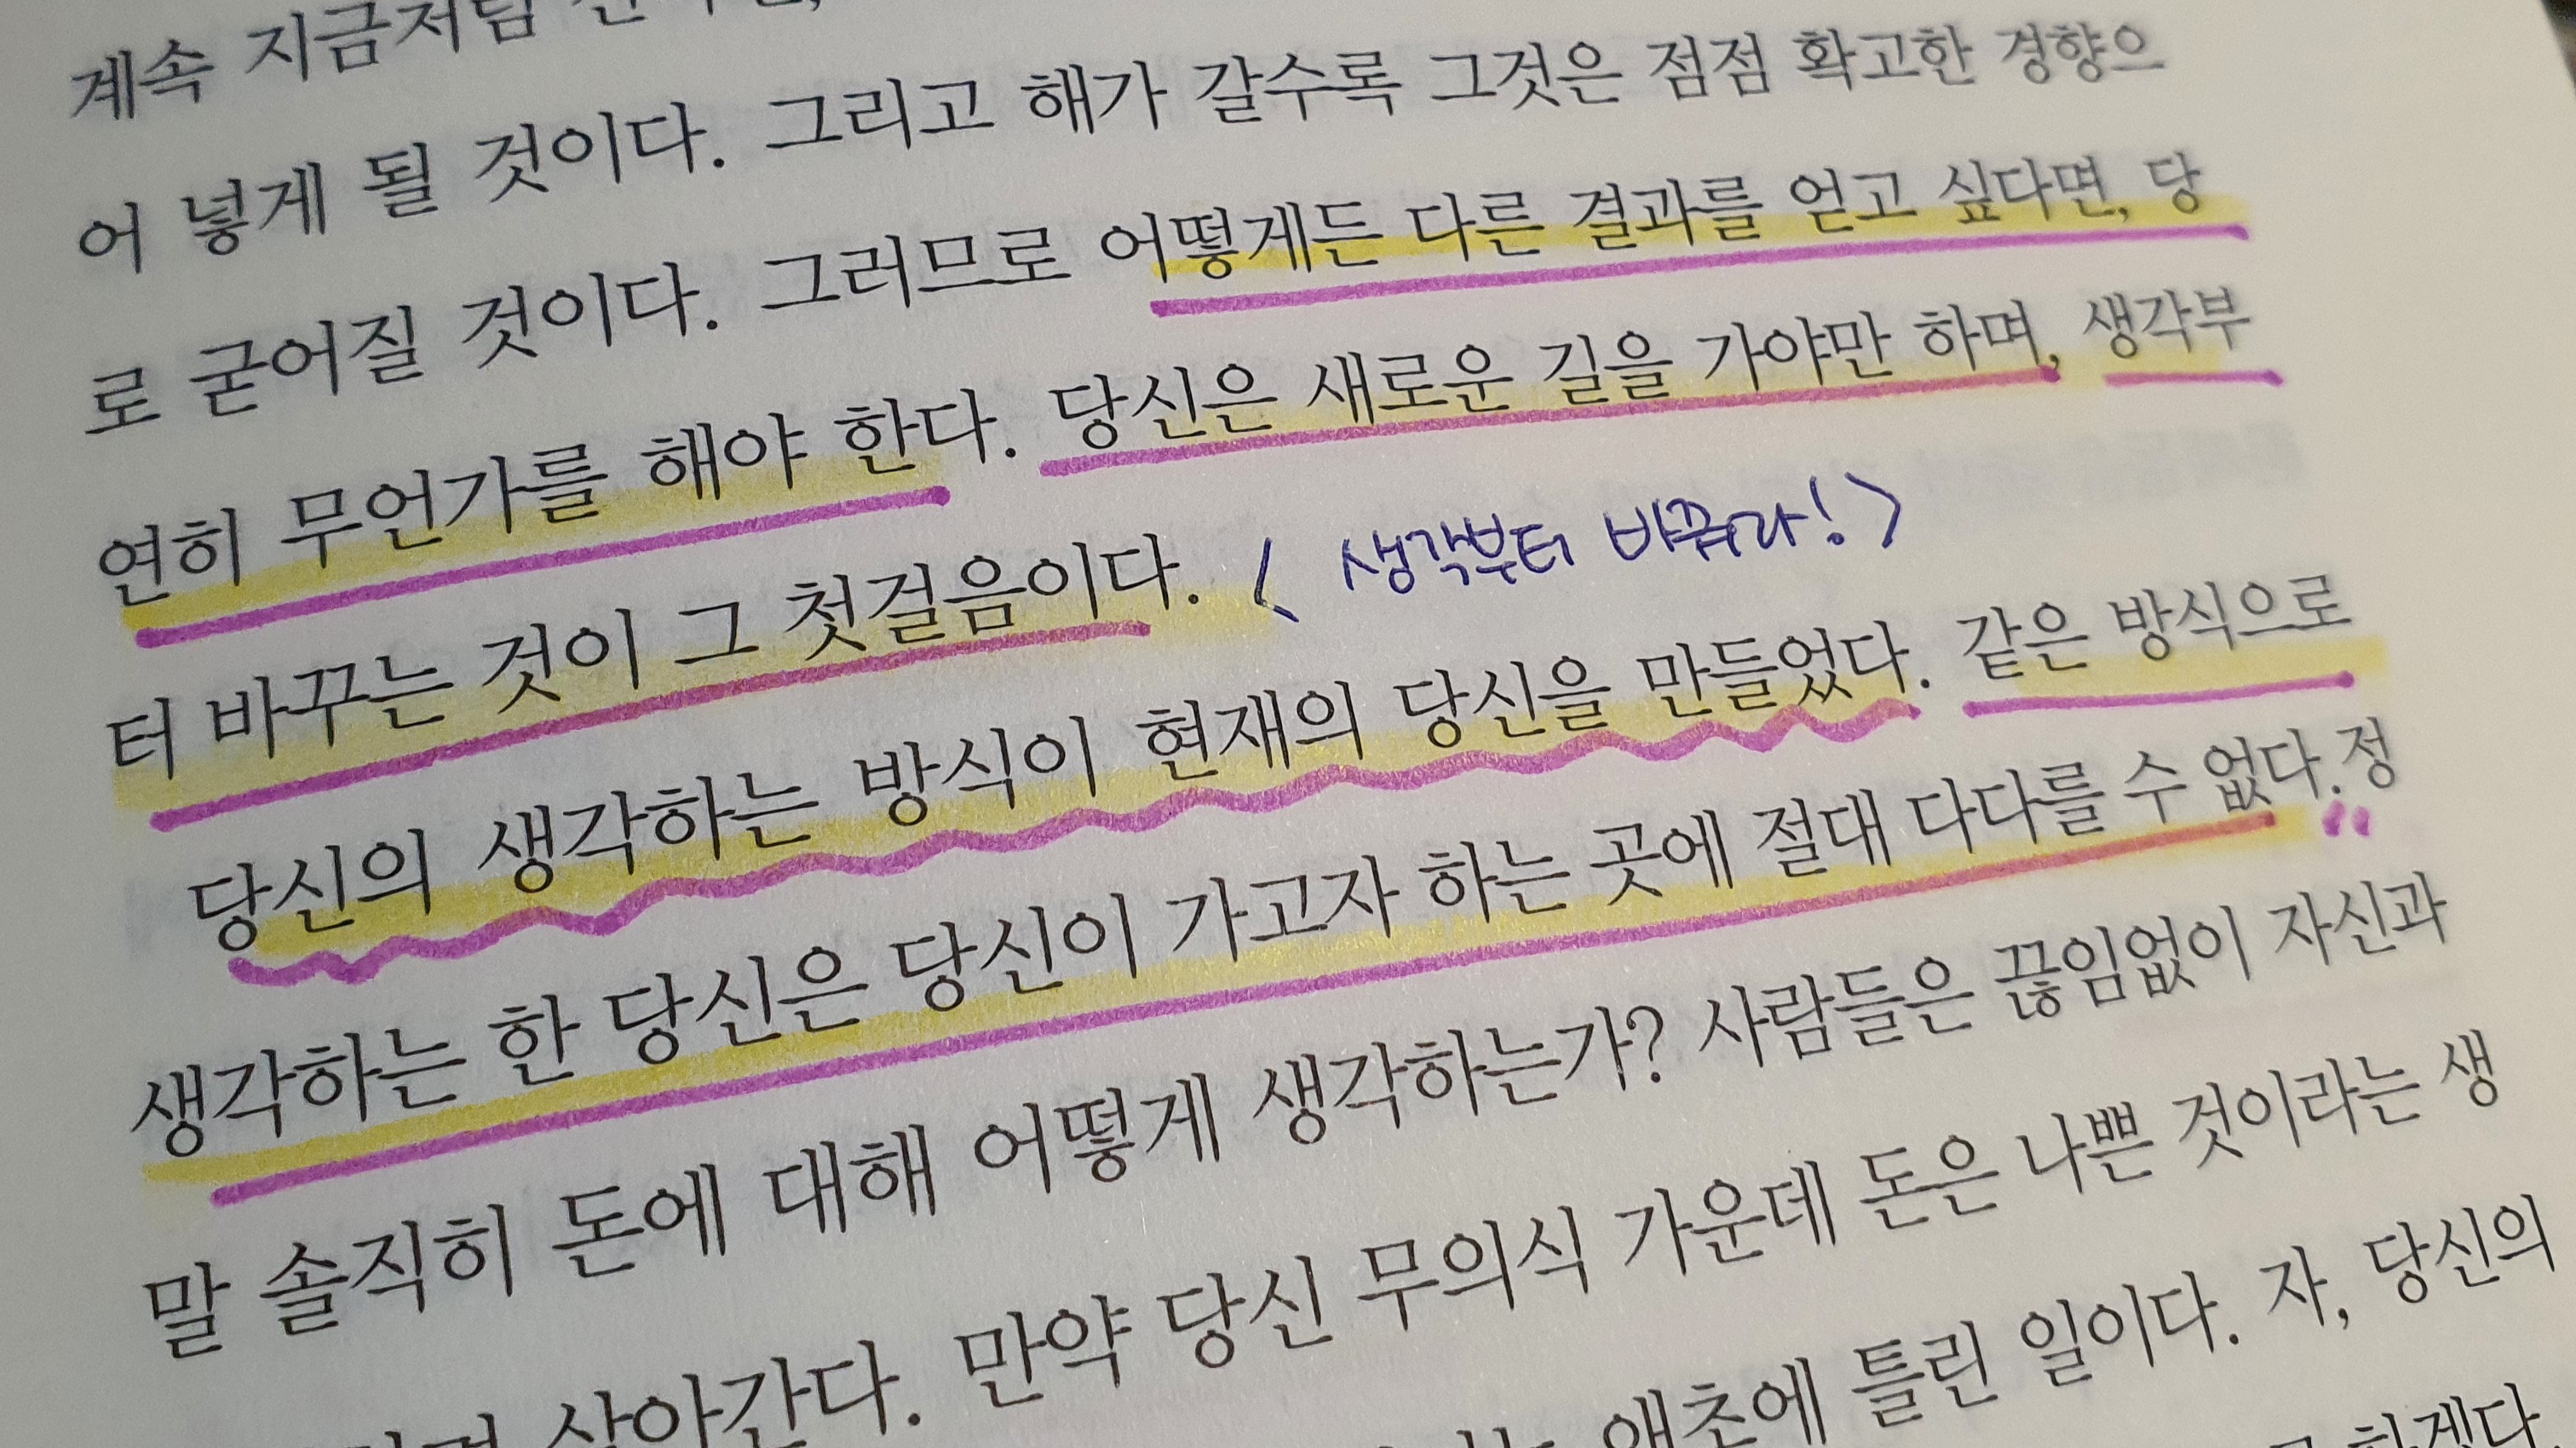 계속 지금처럼
어 넣게 될 것이다. 그리고 해가 갈수록 그것은 점점 확고한 경향으
로 굳어질 것이다. 그러므로 어떻게든 다른 결과를 얻고 싶다면, 당
연히 무언가를 해야 한다. 당신은 새로운 길을 가야만 하며, 생각부
터 바꾸는 것이 그 첫걸음이다. < 생각부터 바꾸라! >
당신의 생각하는 방식이 현재의 당신을 만들었다. 같은 방식으로
생각하는 한 당신은 당신이 가고자 하는 곳에 절대 다다를 수 없다. 정
말 솔직히 돈에 대해 어떻게 생각하는가? 사람들은 끊임없이 자신과
살아간다. 만약 당신 무의식 가운데 돈은 나쁜 것이라는 생
애초에 틀린 일이다. 자, 당신의
하겠다